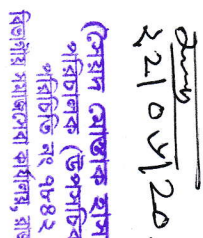 (সৈয়দ মোস্তাক হাস
পরিচালক (উপসচিব
পরিচিতি নং ৭৮৪২
বিভাগীয় সমাজসেবা কার্যালয়, রাজ